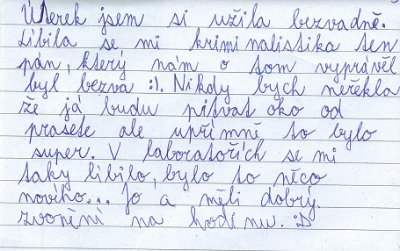 Úterek jsem si užila bezvadně.
Líbila se mi kriminalistika ten
pán, který nám o tom vyprávěl
byl bezva :). Nikdy bych neřekla
že já budu pitvat oko od
prasete ale upřímně to bylo
super. V laboratořích se mi
taky líbilo, bylo to něco
nového... Jo a měli dobrý
zvonění na hodinu. :D